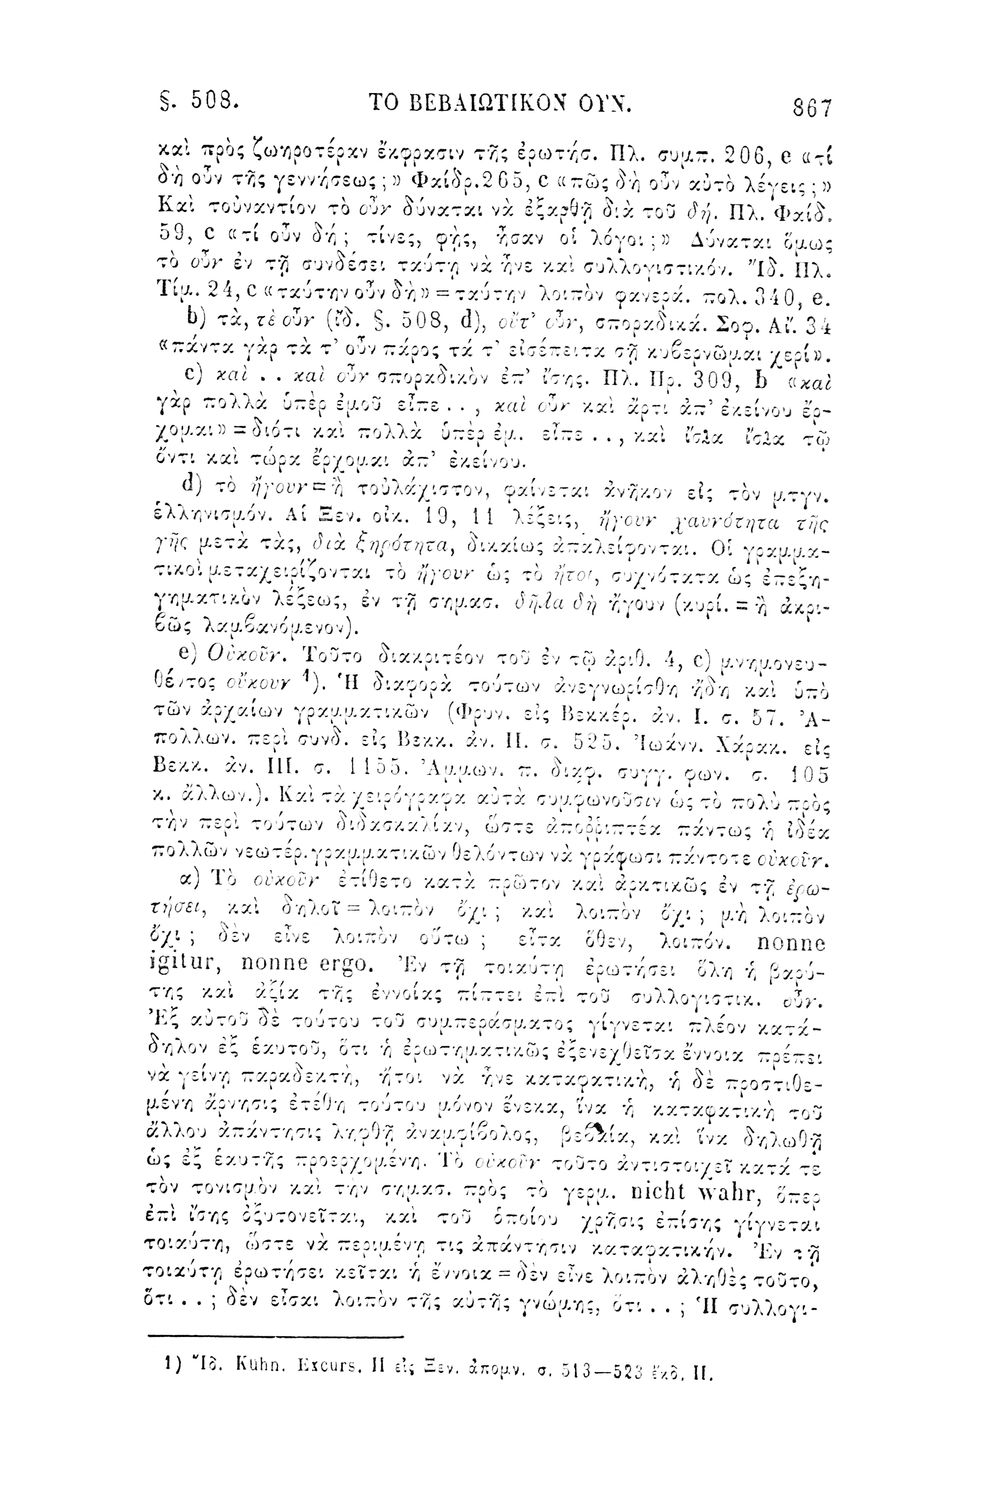 §. 508. ΤΟ ΒΕΒΑΙΩΤΙΚΟΝ ΟΥΝ. 867
καὶ πρὸς ζωηροτέραν ἔκφρασιν τῆς ἐρωτήσ. Πλ. συμπ. 206, e «τί
δὴ οὖν τῆς γεννήσεως;» Φαίδρ. 265, c «πῶς δὴ οὖν αὐτὸ λέγεις;»
Καὶ τοὐναντίον τὸ οὖν δύναται νὰ ἐξαρθῇ διὰ τοῦ δή. Πλ. Φαίδ.
59, c «τί οὖν δή; τίνες, φῄς, ἦσαν οἱ λόγοι;» Δύναται ὅμως
τὸ οὖν ἐν τῇ συνδέσει ταύτῃ νὰ ἦνε καὶ συλλογιστικόν. Ἴδ. Πλ.
Τίμ. 24, c «ταύτην οὖν δὴ» = ταύτην λοιπὸν φανερά. πολ. 340, e.
b) τὰ, τὲ οὖν (ἴδ. §. 508, d), οὔτ' οὖν, σποραδικά. Σοφ. Αἴ. 34
«πάντα γὰρ τὰ τ' οὖν πάρος τά τ' εἰσέπειτα σῇ κυβερνῶμαι χερί».
c) καὶ . . καὶ οὖν σποραδικὸν ἐπ' ἴσης. Πλ. Πρ. 309, b «καὶ
γὰρ πολλὰ ὑπὲρ ἐμοῦ εἶπε . . , καὶ οὖν καὶ ἄρτι ἀπ' ἐκείνου ἔρ-
χομαι» = διότι καὶ πολλὰ ὑπὲρ ἐμ. εἶπε . . , καὶ ἴσα ἴσα τῷ
ὄντι καὶ τώρα ἔρχομαι ἀπ' ἐκείνου.
d) τὸ ἤγουν = ἢ τοὐλάχιστον, φαίνεται ἀνῆκον εἰς τὸν μτγν.
ἑλληνισμόν. Αἱ Ξεν. οἰκ. 19, 11 λέξεις, ἤγουν χαυνότητα τῆς
γῆς μετὰ τὰς, διὰ ξηρότητα, δικαίως ἀπαλείφονται. Οἱ γραμμα-
τικοὶ μεταχειρίζονται τὸ ἤγουν ὡς τὸ ἤτοι, συχνότατα ὡς ἐπεξη-
γηματικὸν λέξεως, ἐν τῇ σημασ. δῆλα δὴ ἤγουν (κυρί. = ἢ ἀκρι-
βῶς λαμβανόμενον).
e) Οὐκοῦν. Τοῦτο διακριτέον τοῦ ἐν τῷ ἀριθ. 4, c) μνημονευ-
θέντος οὔκουν 1). Ἡ διαφορὰ τούτων ἀνεγνωρίσθη ἤδη καὶ ὑπὸ
τῶν ἀρχαίων γραμματικῶν (Φρυν. εἰς Βεκκέρ. ἀν. I. σ. 57. Ἀ-
πολλων. περὶ συνδ. εἰς Βεκκ. ἀν. II. σ. 525. Ἰωάνν. Χάρακ. εἰς
Βεκκ. ἀν. III. σ. 1155. Ἀμμων. π. διαφ. συγγ. φων. σ. 105
κ. ἄλλων.). Καὶ τὰ χειρόγραφα αὐτὰ συμφωνοῦσιν ὡς τὸ πολὺ πρὸς
τὴν περὶ τούτων διδασκαλίαν, ὥστε ἀποῤῥιπτέα πάντως ἡ ἰδέα
πολλῶν νεωτέρ. γραμματικῶν θελόντων νὰ γράφωσι πάντοτε οὐκοῦν.
α) Τὸ οὐκοῦν ἐτίθετο κατὰ πρῶτον καὶ ἀρκτικῶς ἐν τῇ ἐρω-
τήσει, καὶ δηλοῖ = λοιπὸν ὄχι; καὶ λοιπὸν ὄχι; μὴ λοιπὸν
ὄχι; δὲν εἶνε λοιπὸν οὕτω; εἶτα ὅθεν, λοιπόν. nonne
igitur, nonne ergo. Ἐν τῇ τοιαύτῃ ἐρωτήσει ὅλη ἡ βαρύ-
της καὶ ἀξία τῆς ἐννοίας πίπτει ἐπὶ τοῦ συλλογιστικ. οὖν.
Ἐξ αὐτοῦ δὲ τούτου τοῦ συμπεράσματος γίγνεται πλέον κατά-
δηλον ἐξ ἑαυτοῦ, ὅτι ἡ ἐρωτηματικῶς ἐξενεχθεῖσα ἔννοια πρέπει
νὰ γείνῃ παραδεκτὴ, ἤτοι νὰ ἦνε καταφατικὴ, ἡ δὲ προστιθε-
μένη ἄρνησις ἐτέθη τούτου μόνον ἕνεκα, ἵνα ἡ καταφατικὴ τοῦ
ἄλλου ἀπάντησις ληφθῇ ἀναμφίβολος, βεβαία, καὶ ἵνα δηλωθῇ
ὡς ἐξ ἑαυτῆς προερχομένη. Τὸ οὐκοῦν τοῦτο ἀντιστοιχεῖ κατά τε
τὸν τονισμὸν καὶ τὴν σημασ. πρὸς τὸ γερμ. nicht wahr, ὅπερ
ἐπὶ ἴσης ὀξυτονεῖται, καὶ τοῦ ὁποίου χρῆσις ἐπίσης γίγνεται
τοιαύτη, ὥστε νὰ περιμένῃ τις ἀπάντησιν καταφατικήν. Ἐν τῇ
τοιαύτῃ ἐρωτήσει κεῖται ἡ ἔννοια = δὲν εἶνε λοιπὸν ἀληθὲς τοῦτο,
ὅτι . . ; δὲν εἶσαι λοιπὸν τῆς αὐτῆς γνώμης, ὅτι . . ; Ἡ συλλογι-
1) Ἴδ. Kühn. Excurs. II εἰς Ξεν. ἀπομν. σ. 513—523 ἔκδ. II.